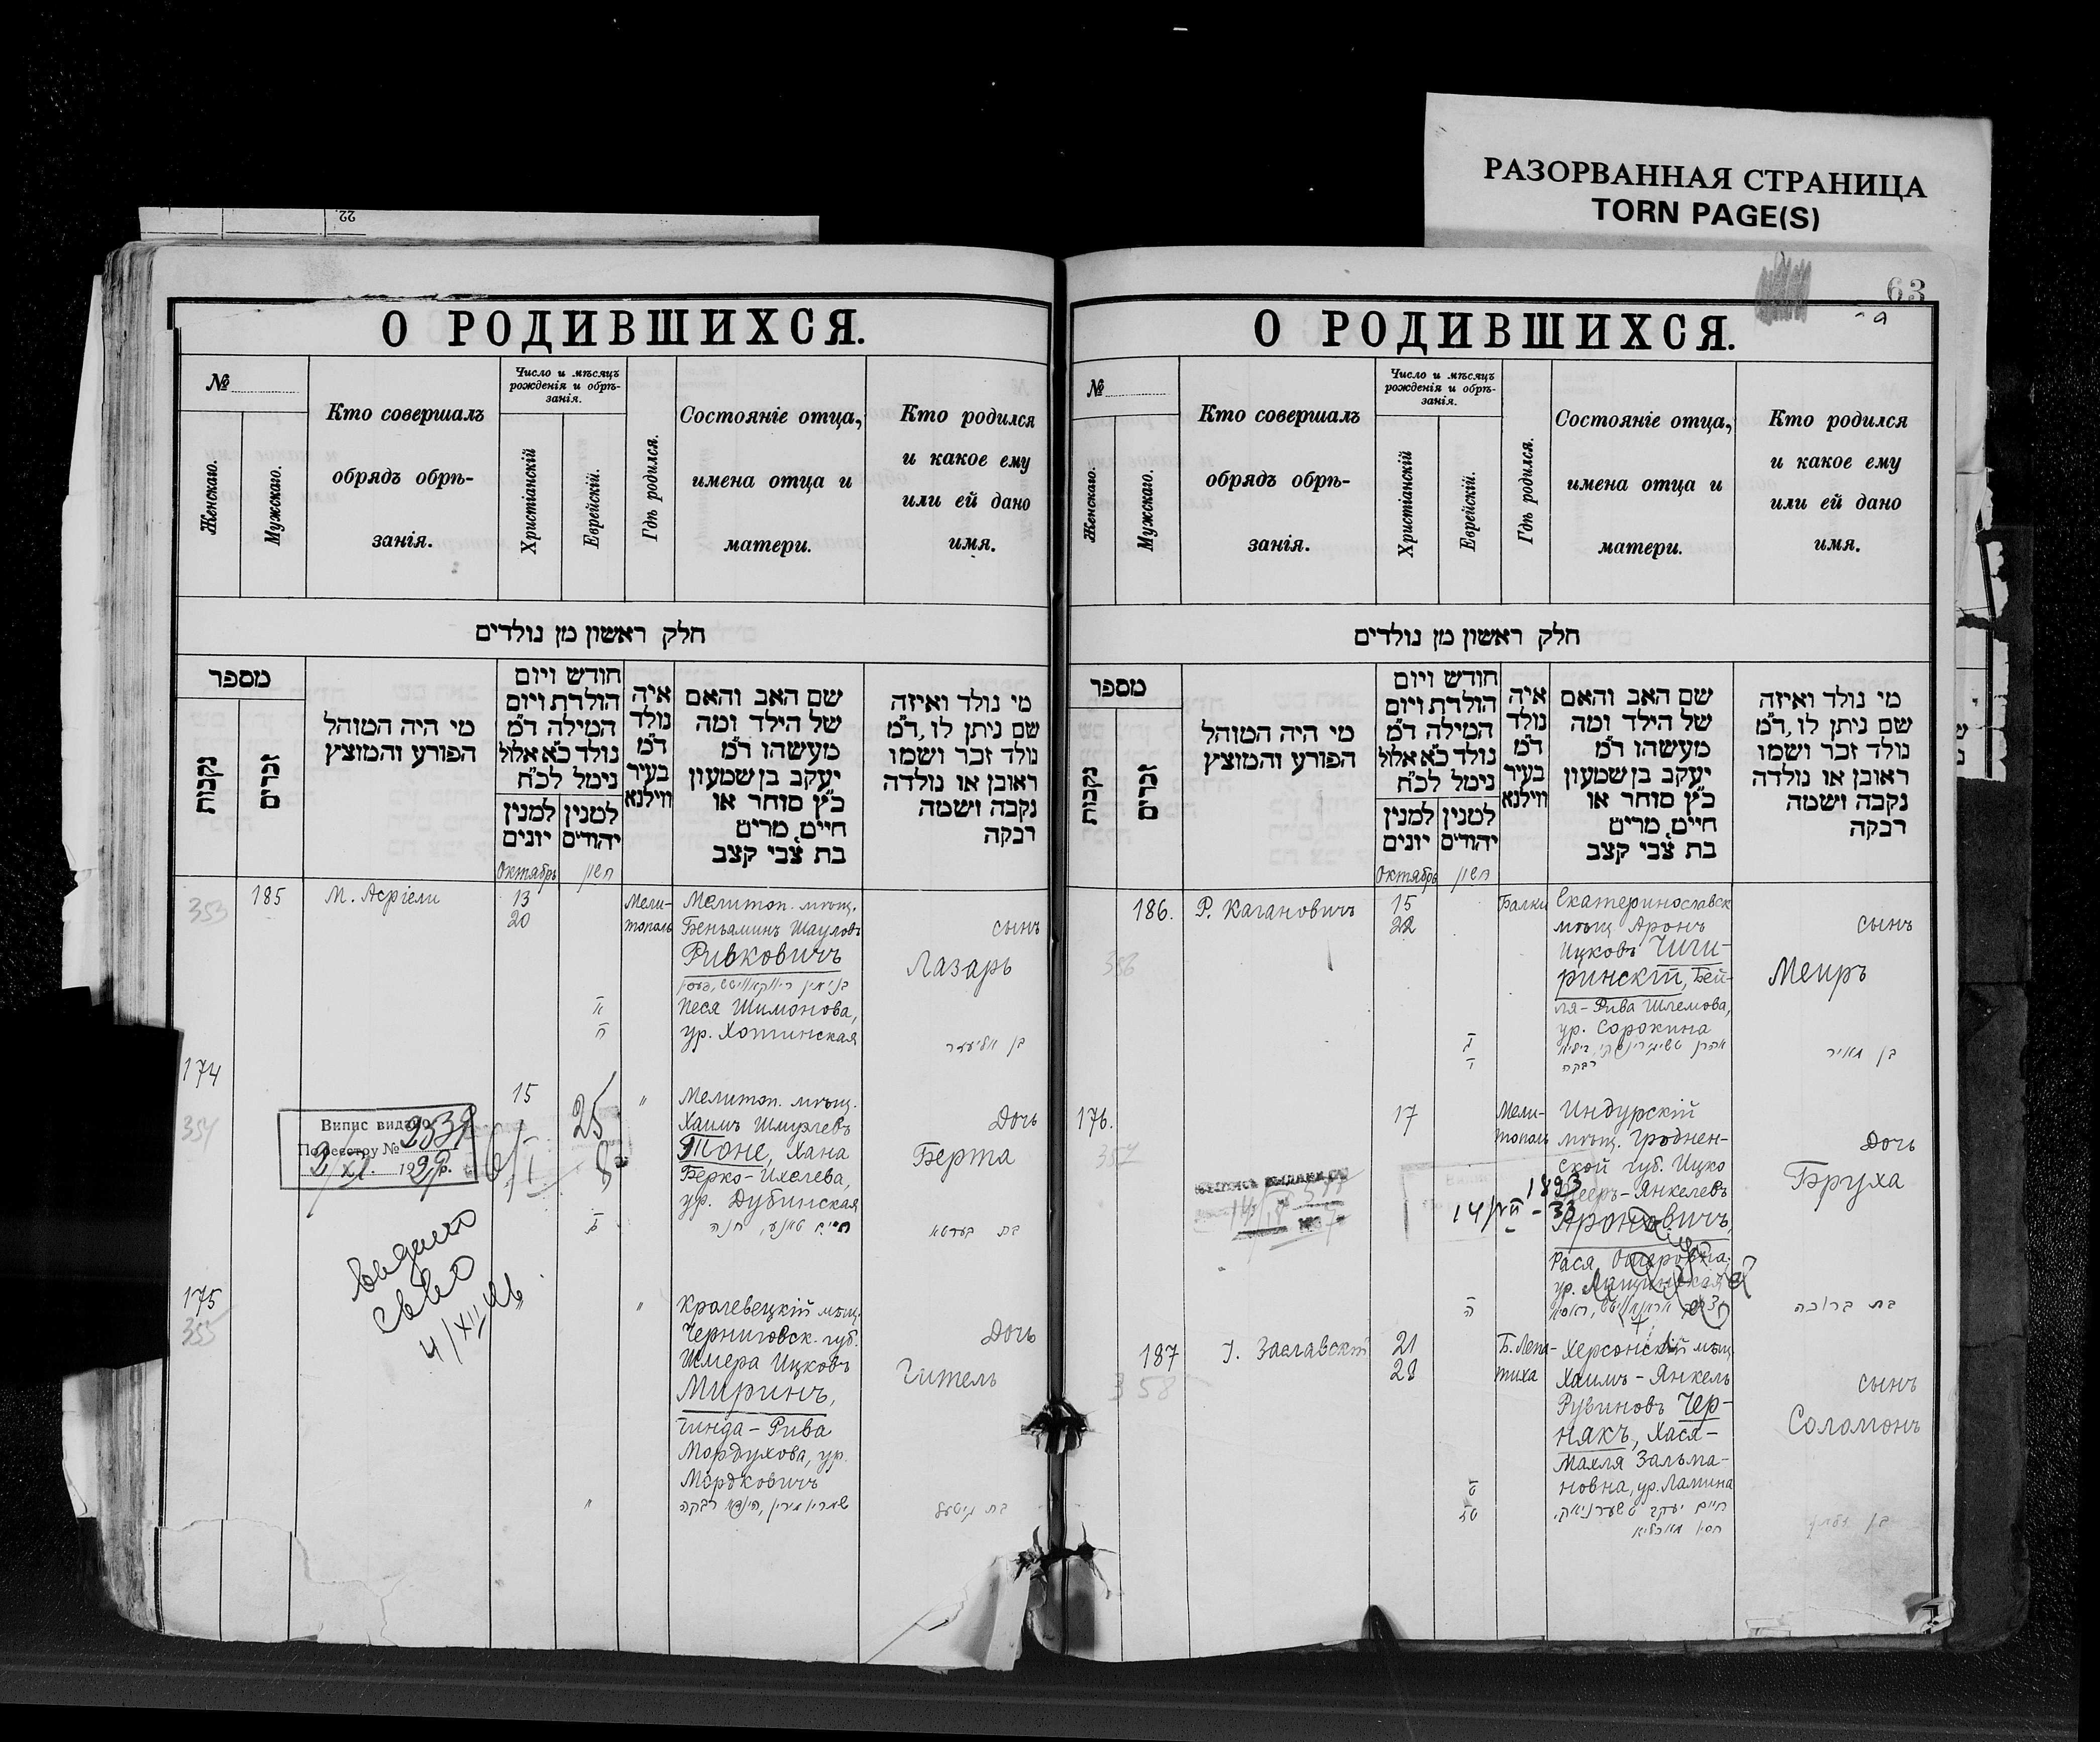 РАЗОРВАННАЯ СТРАНИЦА
TORN PAGE(S)
22.
О РОДИВШИХСЯ.
№
Женскаго.
Мужскаго.
Кто совершалъ
обрядъ обрѣ-
занія.
Число и мѣсяцъ
рожденія и обрѣ-
занія.
Христіанскій
Еврейскій.
Гдѣ родился.
Состояніе отца,
имена отца и
матери.
Кто родился
и какое ему
или ей дано
имя.
חלק ראשון מן נולדים
מספר
נקבות
זכרים
מי היה המוהל
הפורע והמוצץ
חודש ויום
הולדת ויום
המילה ד״מ
נולד כ״א אלול
נימל לכ״ח
למנין יונים
למנין יהודים
איה
נולד
ד״מ
בעיר
ווילנא
שם האב והאם
של הילד ומה
מעשהו ד״מ
יעקב בן שמעון
כ״ץ סוחר או
חיים, מרים
בת צבי קצב
מי נולד ואיזה
שם ניתן לו, ד״מ
נולד זכר ושמו
ראובן או נולדה
נקבה ושמה
רבקה
Октябрь
חשון
353
185
М. Асріели
13
20
Мели-
тополь
Мелитоп. мѣщ.
Беньяминъ Шауловъ
Ривковичъ
Песя Шимонова,
ур. Хотинская
сынъ
Лазарь
בן אליעזר
174
354
15
"
Мелитоп. мѣщ.
Хаимъ Шмулевъ
Тоне, Хана
Берко-Ихелева,
ур. Дубинская
חיים טאנע, חנה
Дочь
Берта
בת בערטא
Випис видано
По реестру № 2539
25
175
355
"
"
Кролевецкій мѣщ.
Черниговск. губ.
Шмера Ицковъ
Миринъ,
Гинда-Рива
Мордухова, ур.
Мордковичъ
Дочь
Гитель
בת גיטעל
видано
св-во
4/XII
63
О РОДИВШИХСЯ.
№
Женскаго.
Мужскаго.
Кто совершалъ
обрядъ обрѣ-
занія.
Число и мѣсяцъ
рожденія и обрѣ-
занія.
Христіанскій
Еврейскій.
Гдѣ родился.
Состояніе отца,
имена отца и
матери.
Кто родился
и какое ему
или ей дано
имя.
חלק ראשון מן נולדים
מספר
נקבות
זכרים
מי היה המוהל
הפורע והמוצץ
חודש ויום
הולדת ויום
המילה ד״מ
נולד כ״א אלול
נימל לכ״ח
למנין יונים
למנין יהודים
איה
נולד
ד״מ
בעיר
ווילנא
שם האב והאם
של הילד ומה
מעשהו ד״מ
יעקב בן שמעון
כ״ץ סוחר או
חיים, מרים
בת צבי קצב
מי נולד ואיזה
שם ניתן לו, ד״מ
נולד זכר ושמו
ראובן או נולדה
נקבה ושמה
רבקה
Октябрь
חשון
356
186.
Р. Кагановичъ
15
22
Балки
Екатеринославск
мѣщ Аронъ
Ицковъ Чиги-
ринскій, Бей-
ля-Рива Шлемова,
ур. Сорокина
רבקה
сынъ
Меиръ
בן מאיר
176.
357
17
Мели-
тополь
Индурскій
мѣщ. Гроднен-
ской губ. Ицко
Мееръ-Янкелевъ
Ароновичъ,
Рася
ур.
Дочь
Бруха
בת ברוכה
1893
14/VII-33
187
358
І. Заславскій
21
28
Б. Лепе-
тиха
Херсонскій мѣщ
Хаимъ-Янкель
Рувиновъ Чер-
някъ, Хася-
Махля Зальма-
новна, ур. Ламина
сынъ
Соломонъ